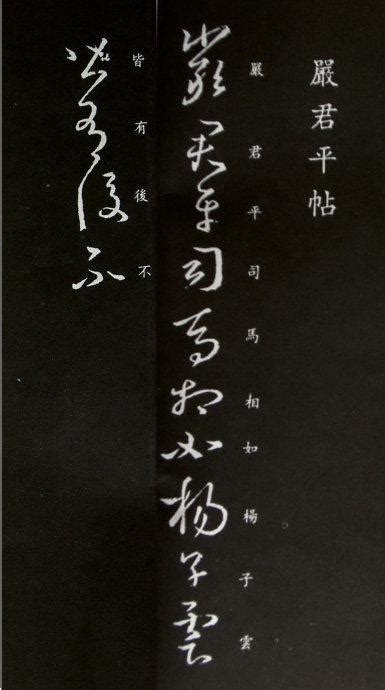 嚴君平帖
嚴君平司馬相如楊子雲
嚴君平司馬相如楊子雲
皆有後不
皆有後不